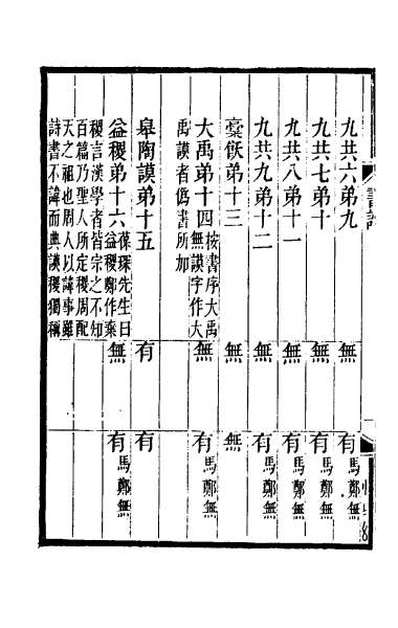 九共六弟九 無 有馬鄭無
九共七弟十 無 有馬鄭無
九共八弟十一 無 有馬鄭無
九共九弟十二 無 有馬鄭無
槀飫弟十三 無 無
大禹弟十四 按書序大禹無謨字作大 無 有馬鄭無
禹謨者僞書所加
臯陶謨弟十五 有 有
益稷弟十六 葆琛先生曰益稷鄭作棄 無 有馬鄭無
稷言漢學者皆宗之不知百篇乃聖人所定稷周配
天之祖也周人以諱事雖詩書不諱而典謨稷獨稱